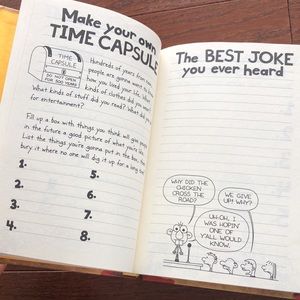 Make your own
TIME CAPSULE
TIME
CAPSULE
DO NOT OPEN
FOR 300 YEARS
Hundreds of years from
people are gonna want to
how you lived your life. What
kinds of clothes did you
What kinds of stuff did you read? What did you
for entertainment?
Fill up a box with things you think will give people
in the future a good picture of what you
List the things you're gonna put in the box, then
bury it where no one will dig it up for a long
1.
2.
3.
4.
5.
6.
7.
8.
The BEST JOKE
you ever heard
WHY DID THE
CHICKEN
CROSS THE
ROAD?
WE GIVE
UP! WHY?
UH-OH, I
WAS HOPIN'
ONE OF
Y'ALL WOULD
KNOW.